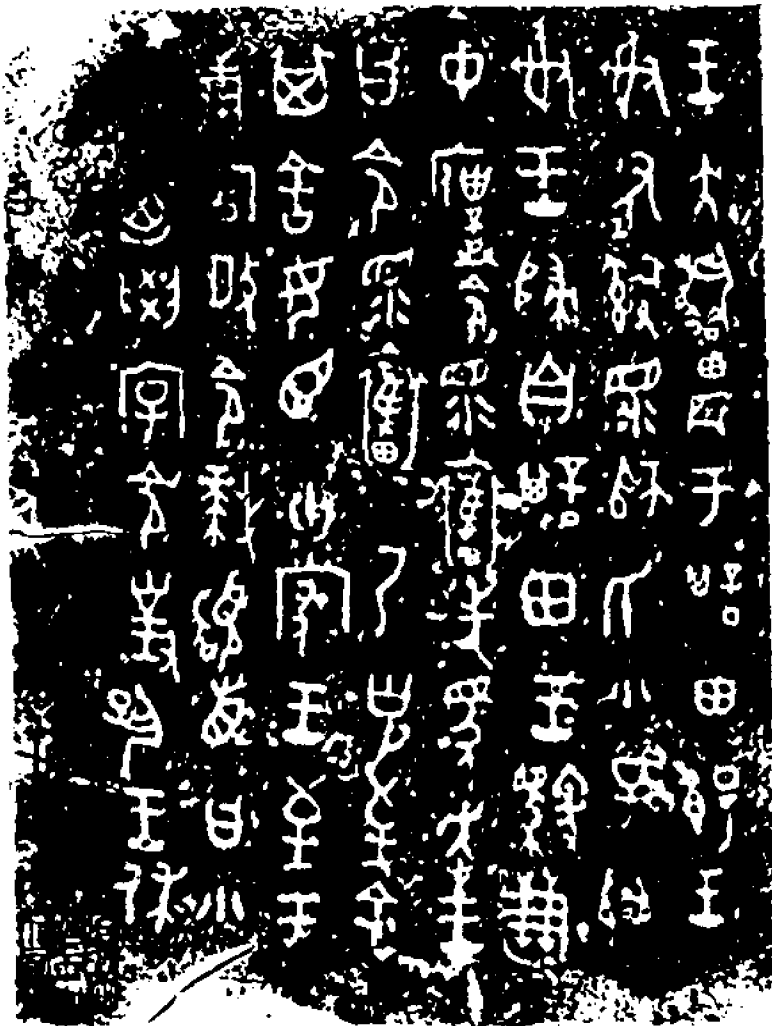 王大耤農于諆田餳王
射有𤔲眔師氏小子𨛭
射王歸自諆田王馭溓
中僕令眔奮先馬走王
曰令眔奮乃克至余
其舍女臣卅家王至于
溓宮𢼄令拜𩒨首曰小
子迺學令對揚王休